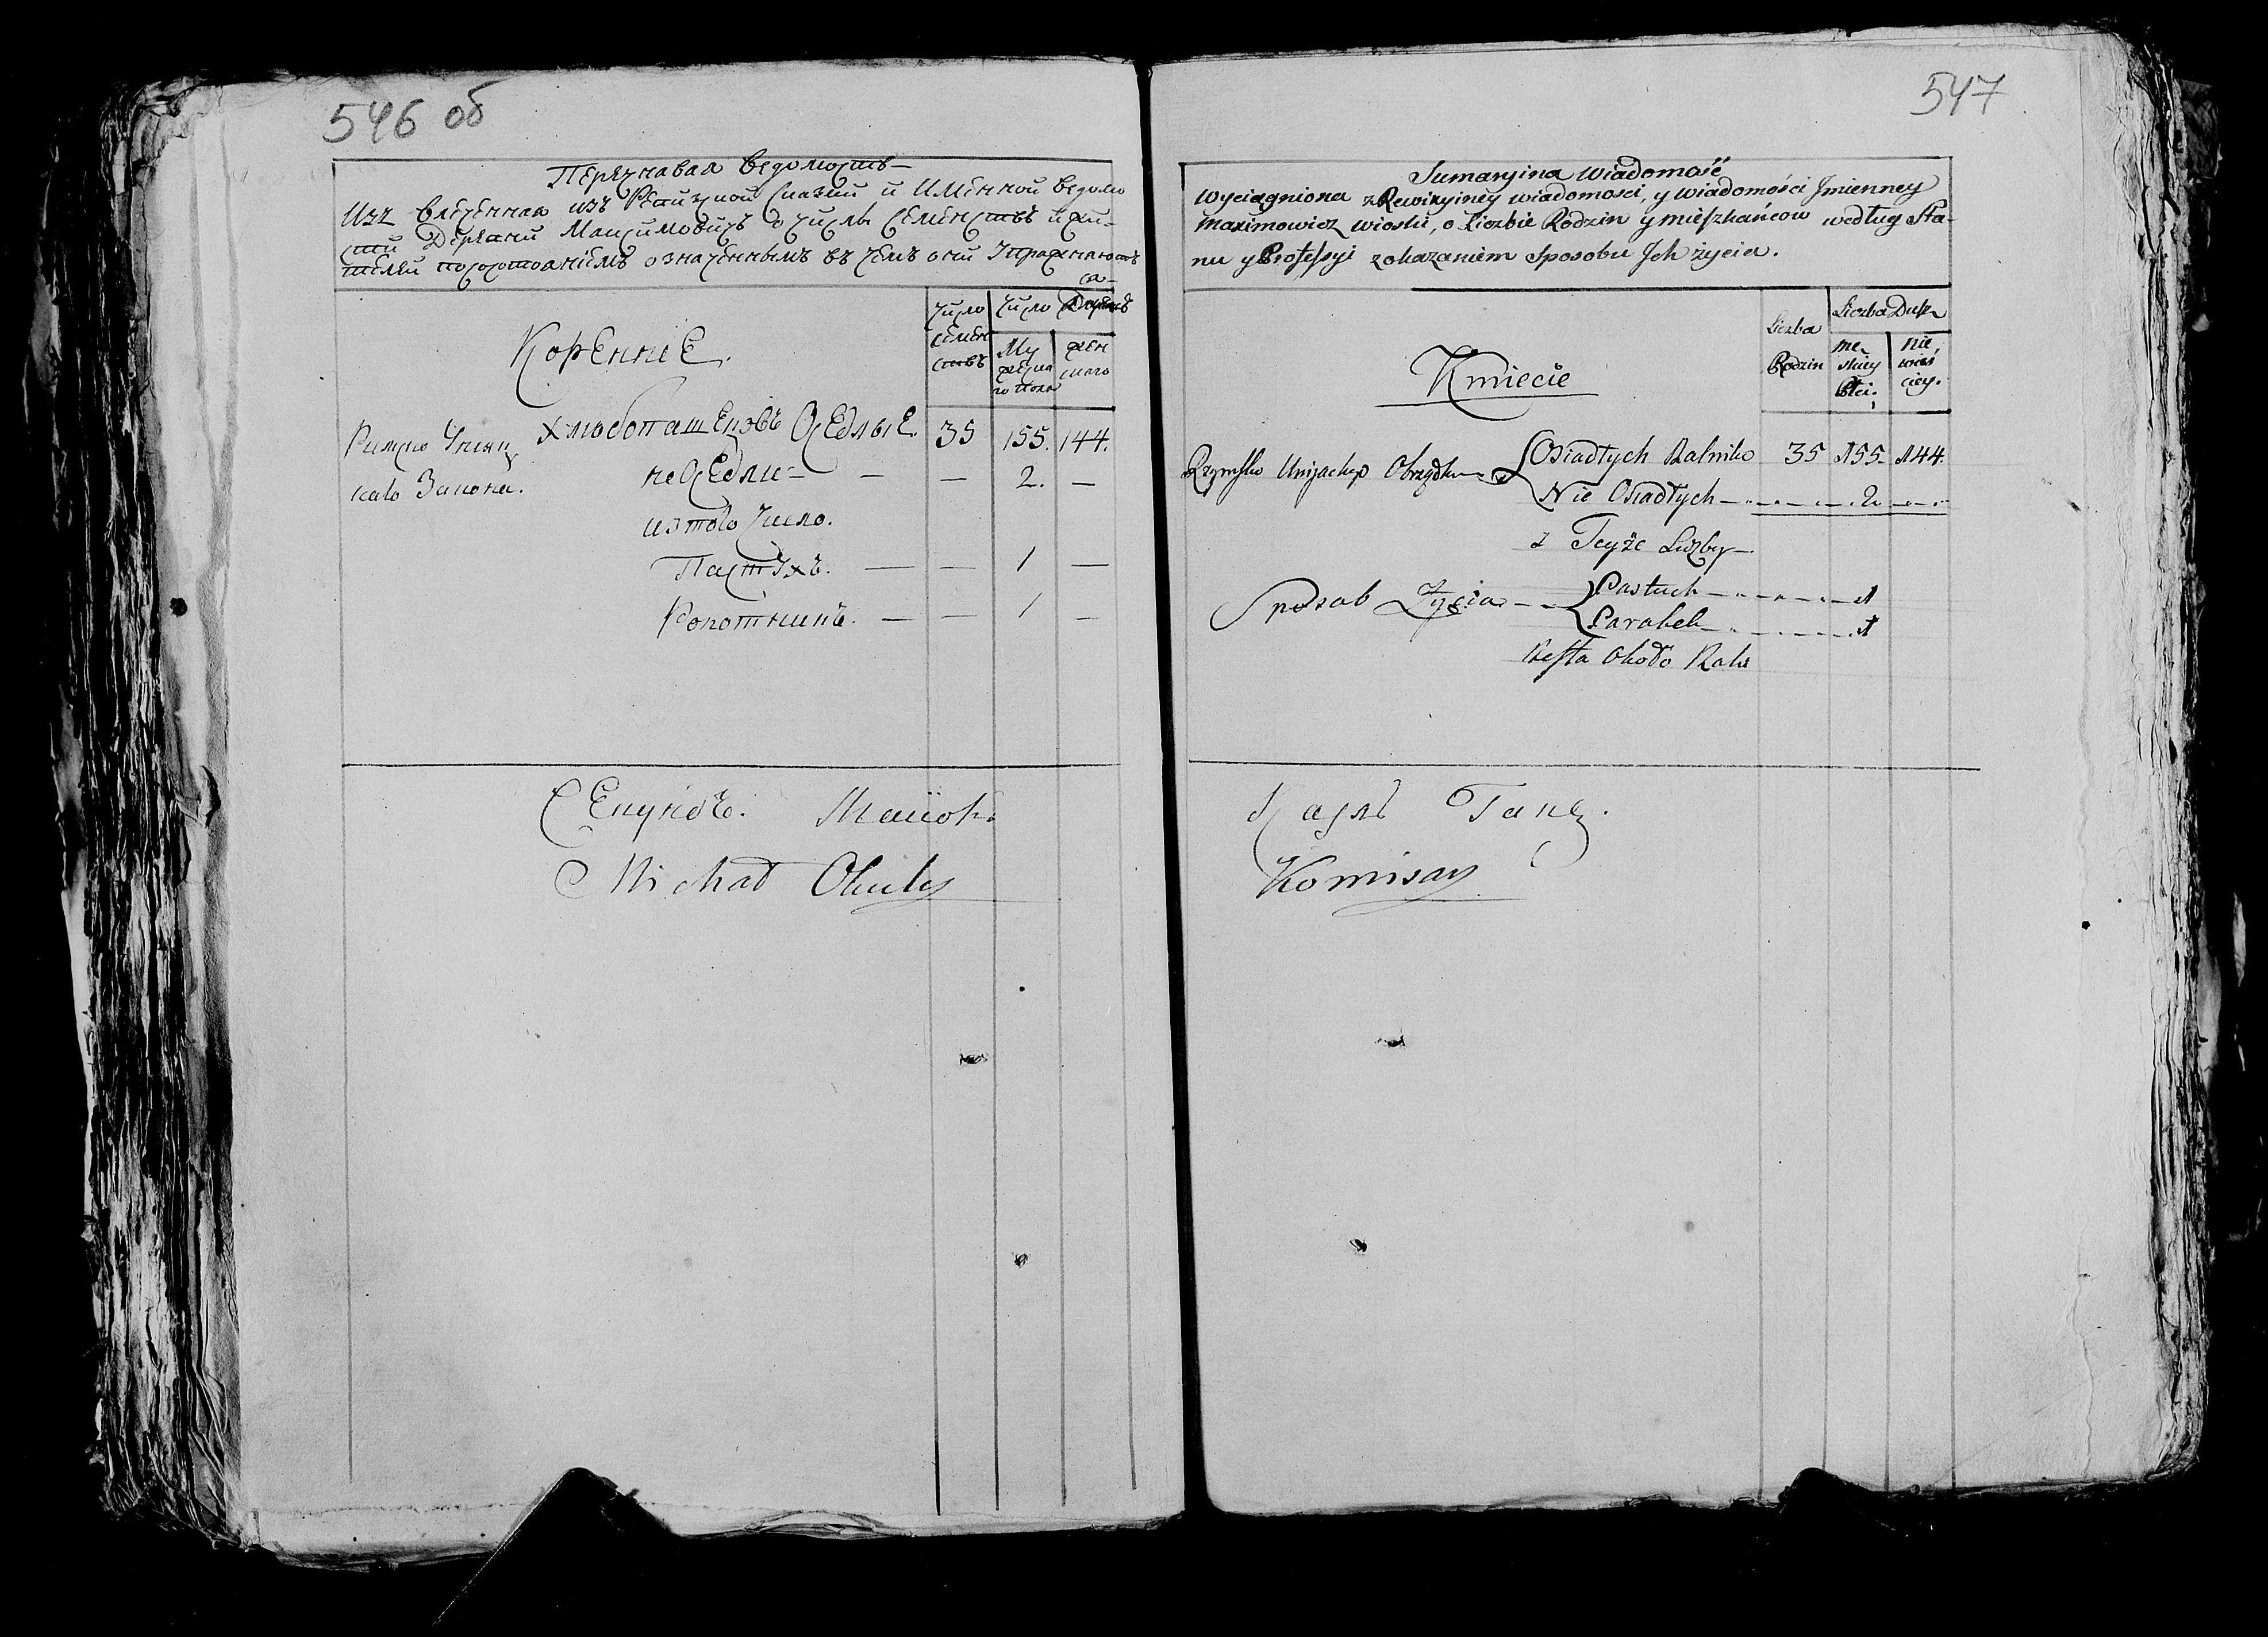 546 об
Перечневая ведомость
Изъ влеченная изъ Ревизкой сказки и Имянной ведомо
сти Деревни Максимовичь о числѣ семенствъ и жи-
телей по состояниемъ означеннымъ въ чемъ они упражняют
ся
Число семен ствъ
Число Душъ
Му жеска го пола
жен скаго
Коренние.
Римско Униц каго Закона.
хлебопашецовъ Оседлые. 35 155. 144.
не Оседли — — 2. —
из того число.
Пастухъ. — — 1 —
Работникъ. — — 1 —
Секундъ. Маиоръ
Michał Okuly
547
Sumaryina Wiadomość
Wyciągniona z Rewizyiney wiadomosci, y wiadomości Jmienney
Maximowicz wioski, o Liczbie Rodzin y mieszkańcow według Sta-
nu y Professyi z okazaniem Sposobu Jch życia.
Liczba Rodzin
Liczba Dusz
mę skiey Płci.
nie wieś ciey.
Kmiecie
Rzymsko Unijackiego Obrządku
Osiadłych Rolnikow 35 155. 144.
Nie Osiadłych 2
z Teyże Liczby
Sposab Życia
Pastuch 1
Parobek 1
Reszta Około Roli
Карлъ Ганц.
Komisarz